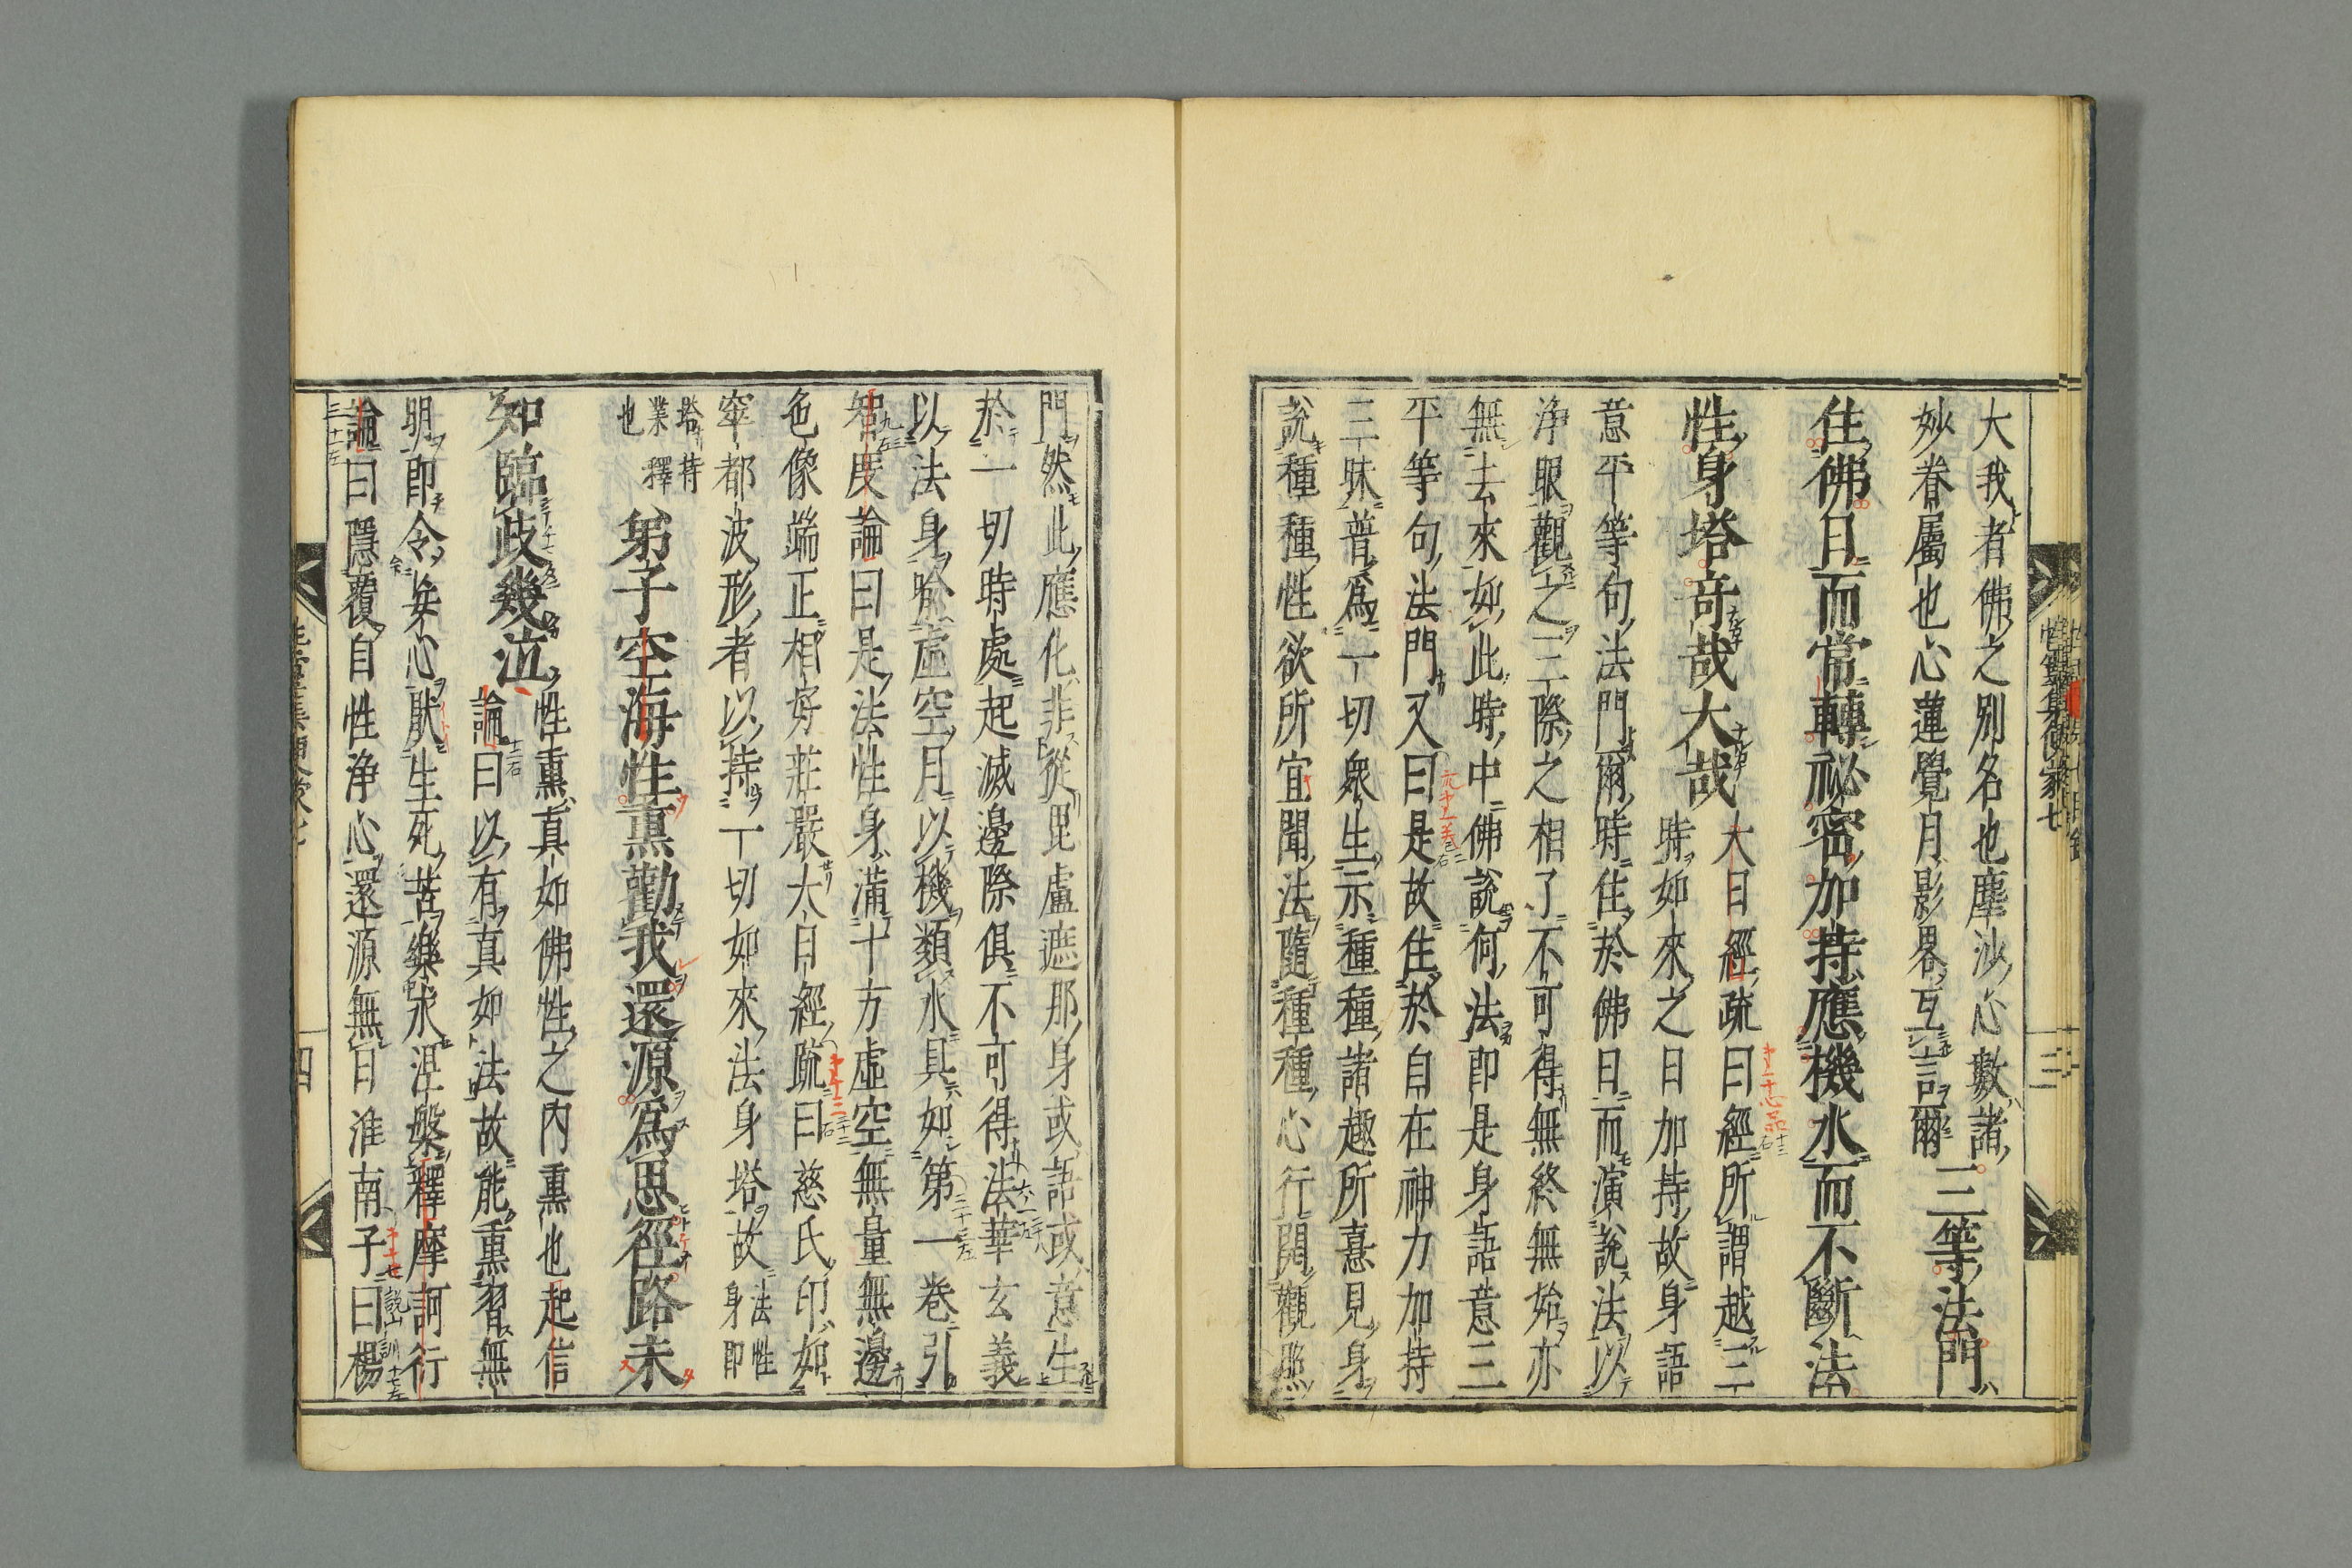 大我者佛之別名也塵沙心數諸
妙眷屬也心蓮覺月影畧互言爾三等法門
住佛日而常轉祕密加持應機水而不斷法
性身塔奇哉大哉
大日經疏曰經所謂越三
時如來之日加持故身語
意平等句法門爾時住於佛日而演說法以
淨眼觀之三際之相了不可得無終無始亦
無去來如此時中佛說何法即是身語意三
平等句法門又曰是故住於自在神力加持
三昧普爲一切衆生示種種諸趣所憙見身
說種種性欲所宜聞法隨種種心行開觀照
門然此應化非從毘盧遮那身或語或意生
於一切時處起滅邊際俱不可得法華玄義
以法身喩虛空月以機類水具如第一卷引
智度論曰是法性身滿十方虛空無量無邊
色像端正相好莊嚴大日經疏曰慈氏印如
窣都波形者以持一切如來法身塔故
法性
身即
塔持
業釋
也
弟子空海性熏勸我還源爲思徑路未
知臨歧幾泣
性熏真如佛性之內熏也起信
論曰以有真如法故能熏習無
明即令妄心厭生死苦樂求涅槃釋摩訶衍
論曰隱覆自性淨心還源無日淮南子曰楊
性靈集便蒙七
三
四